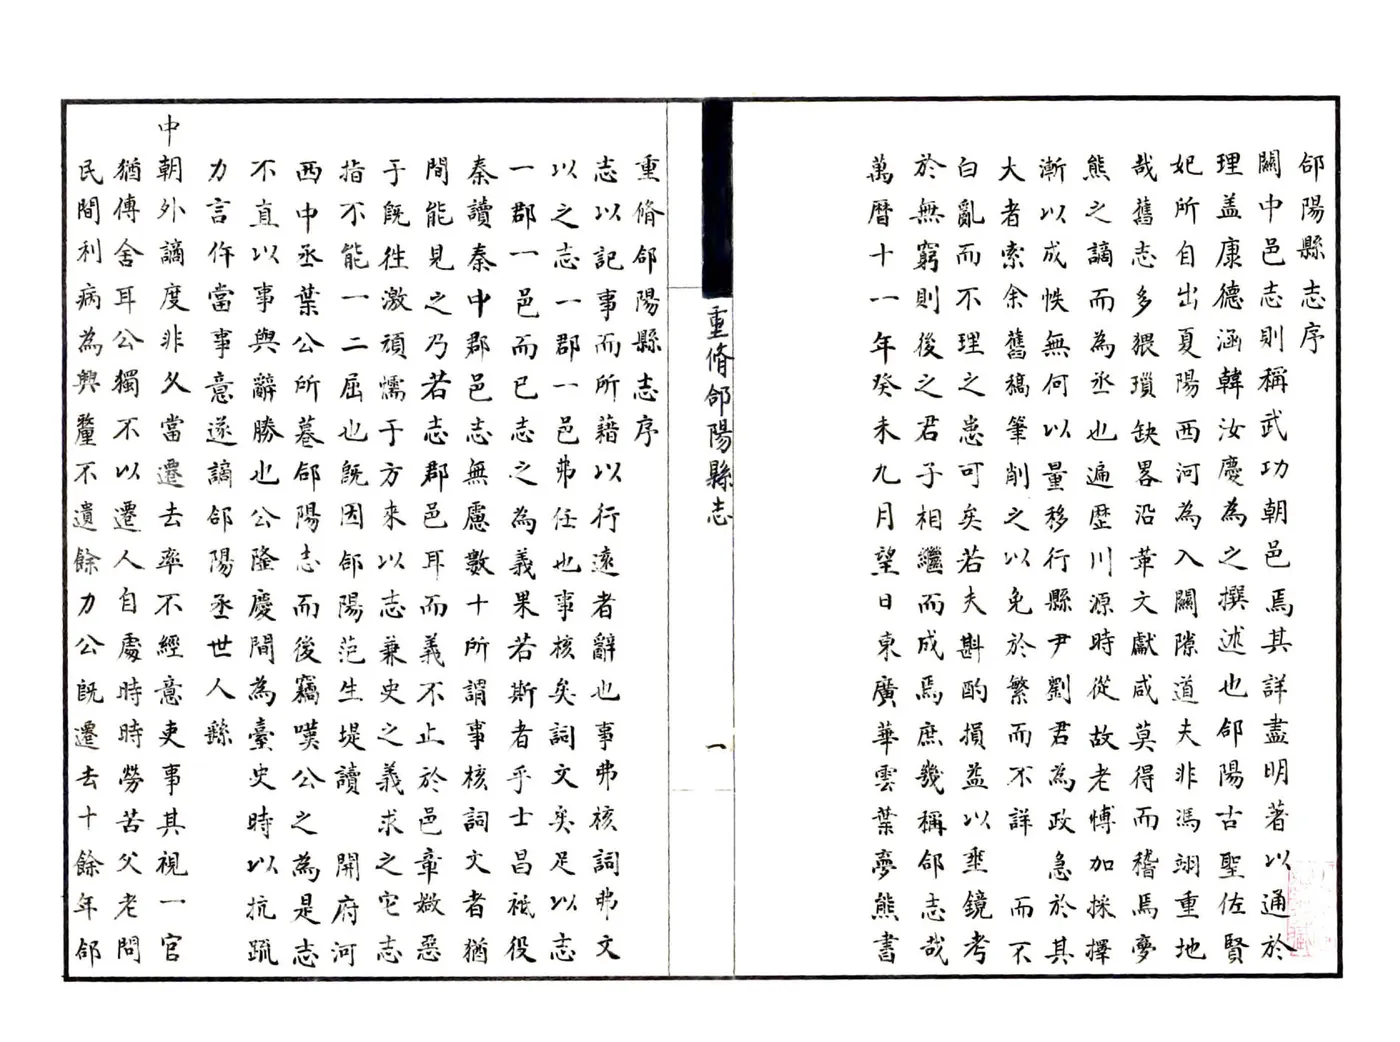 郃陽縣志序
關中邑志則稱武功朝邑焉其詳盡明著以通於
理盖康德涵韓汝慶為之撰述也郃陽古聖佐賢
妃所自出夏陽西河為入關隙道夫非馮翊重地
哉舊志多猥瑣缺畧沿革文獻咸莫得而稽焉夢
熊之謫而為丞也遍歴川源時從故老愽加採擇
漸以成帙無何以量移行縣尹劉君為政 急於其
大者索余舊稿筆削之以免於繁而不詳 而不
白亂而不理之患可矣若夫斟酌損益以垂鏡考
於無窮則後之君子相繼而成焉庶幾稱郃志哉
萬曆十一年癸未九月望日東廣華雲葉夢熊書
重脩郃陽縣志
一
重脩郃陽縣志序
志以記事而所藉以行逺者辭也事弗核詞弗文
以之志一郡一邑弗任也事核矣詞文矣足以志
一郡一邑而已志之為義果若斯者乎士昌祗役
秦讀秦中郡邑志無慮數十所謂事核詞文者猶
間能見之乃若志郡邑耳而義不止於邑章媺惡
于既徃激頑懦于方來以志兼史之義求之它志
指不能一二屈也既因郃陽范生堤讀 開府河
西中丞葉公所纂郃陽志而後竊嘆公之為是志
不直以事與辭勝也公隆慶間為臺史時以抗疏
力言仵當事意遂謫郃陽丞世人繇
中朝外謫度非久當遷去率不經意吏事其視一官
猶傳舍耳公獨不以遷人自處時時勞苦父老問
民間利病為興釐不遺餘力公既遷去十餘年郃